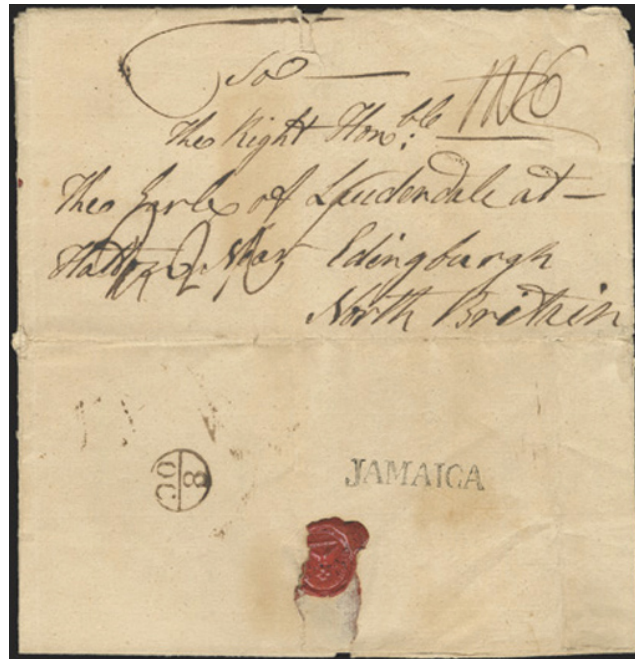 To
The Right Hon:ble
The Earle of Lauderdale at
Hatton Near Edingburgh
North Brittain
8
OC
JAMAICA